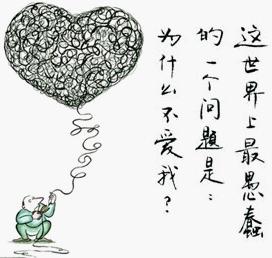 这世界上最愚蠢
的一个问题是：
为什么不爱我？